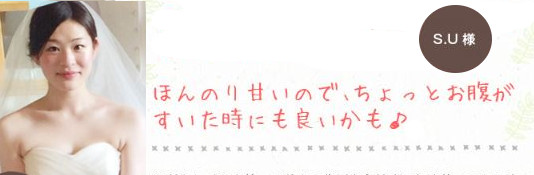 S.U 様
ほんのり甘いので、ちょっとお腹が
すいた時にも良いかも♪